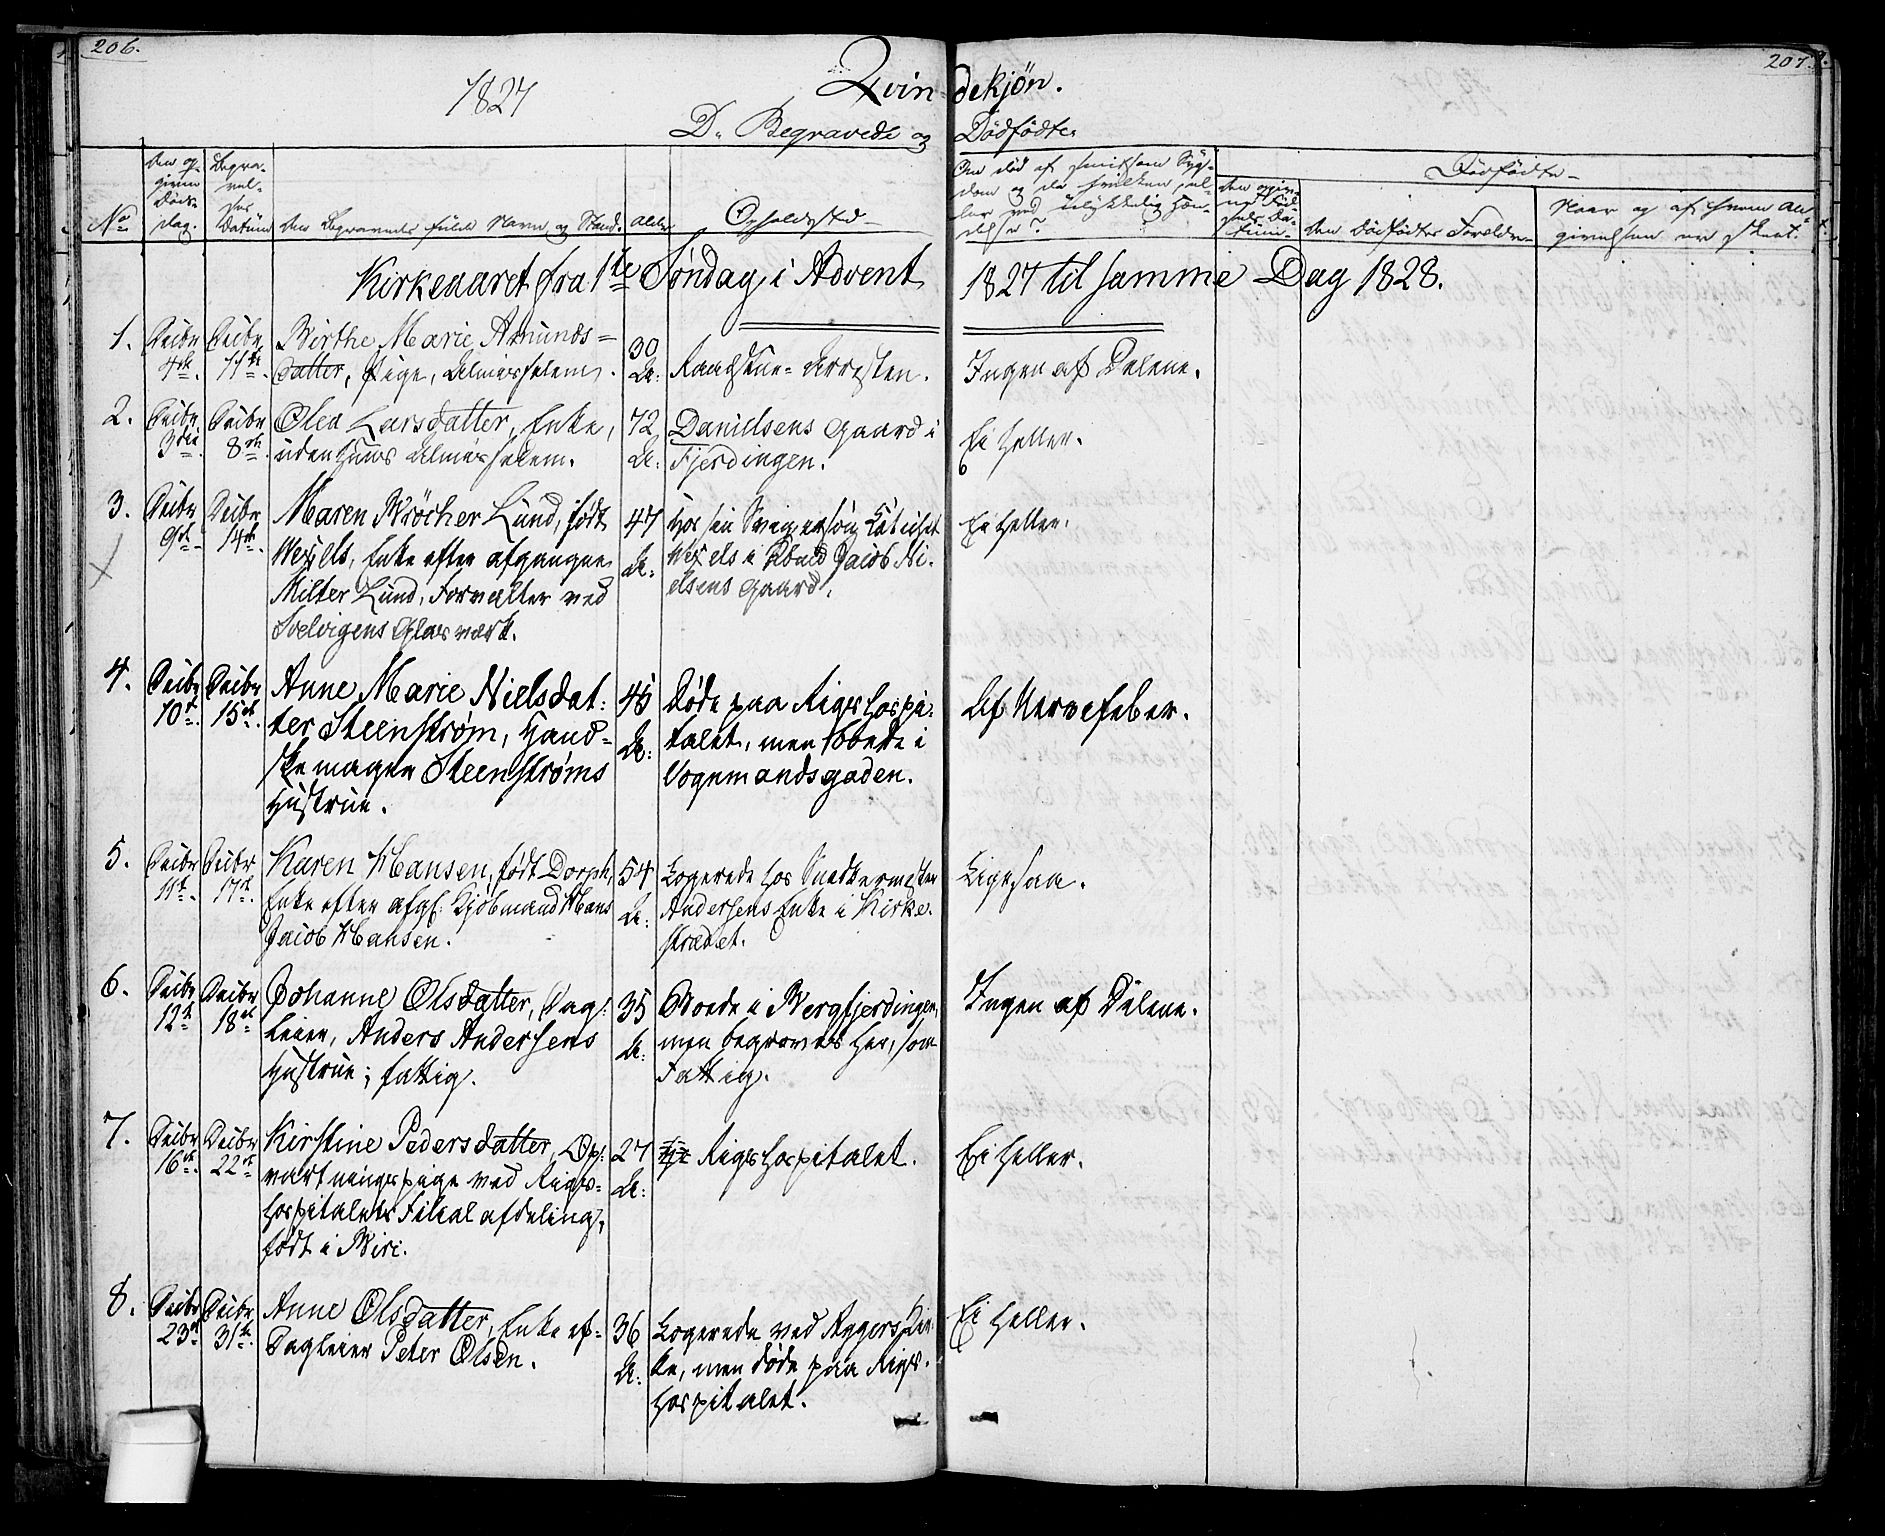 206.
207.
1827
Qvindekjön.
D. Begravede og Dödfödte.
No
Den opgivne Döds-dag.
Begravelses Datum
Den Begravedes fulde Navn og Stand.
Alder
Opholdssted
Om död af smitsom Sygdom og da hvilken, eller ved ulykkelig Hændelse?
Dödfödte
Den Dödfödtes Forældre
Naar og af hvem Angivelsen er skeet.
Kirkeaaret fra 1ste Søndag i Advent 1827 til samme Dag 1828.
1. Decbr 4de. Decbr 11te. Birthe Marie Amunds=
datter, Pige, Almisselem. 30 A: Raadstue-Arresten. Ingen af Delene.
2. Decbr 3die. Decbr 8de. Olea Larsdatter, Enke,
udenhuus Almisselem. 72 A: Danielsens Gaard i
Fjerdingen. Ei heller.
3. Decbr 9de. Decbr 14de. Maren Bröcher Lund, født
Wessels, Enke efter afgangne
Milter Lund, Forvalter ved
Svelvigens Glasværk.
47 A: Hos sin Svigersøn
Wessels i Jacob Ni-
elsens Gaard.
Ei heller.
4. Decbr 10de. Decbr 15de. Anne Marie Nielsdat:
ter Steenstrøm, Hand=
skemager Steenstrøms
Hustrue.
45 A: Døde paa Rigshospi-
talet, men boede i
Vognmandsgaden.
Af Nervefeber.
5. Decbr 11te. Decbr 17de. Karen Hansen, født Dorph,
Enke efter afg: Kjøbmand Hans
Jacob Hansen.
54 A: Logerede hos Snedkermester
Andersens Enke i Kirke-
strædet.
Ligesaa.
6. Decbr 12te. Decbr 18de. Johanne Olsdatter, Dag:
leier, Anders Andersens
Hustrue; fattig.
35 A: Boede i Bergfjerdingen,
men begravedes her, som
Fattig.
Ingen af Delene.
7. Decbr 16de. Decbr 22de. Kirstine Pedersdatter, Op:
vartningspige ved Rigs=
hospitalets Filial afdeling,
født i Biri.
27 A: Rigshospitalet. Ei heller.
8. Decbr 23de. Decbr 31te. Anne Olsdatter, Enke ef=
Dagleier Peter Olsen.
36 A: Logerede ved Aggers Kir-
ke, men døde paa Rigs-
hospitalet.
Ei heller.